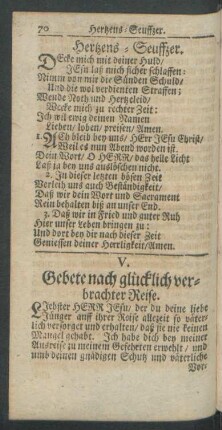 70 Hertzens-Seuffzer.
Hertzens-Seuffzer.
DEcke mich mit deiner Huld/
JEsu laß mich sicher schlaffen:
Nimm von mir die Sünden Schuld/
Und die wol verdienten Straffen;
Wende Noth und Hertzleid/
Wecke mich zu rechter Zeit:
Ich wil ewig deinen Namen
Lieben/ loben/ preisen/ Amen.
1. ACh bleib bey uns/ HErr JEsu Christ/
Weil es nun Abend worden ist.
Dein Wort/ O HERR/ das helle Licht
Laß ja bey uns auslöschen nicht.
2. In dieser letzten bösen Zeit
Verleih uns auch Beständigkeit/
Daß wir dein Wort und Sacrament
Rein behalten biß an unser End.
3. Daß wir in Fried und guter Ruh
Hier unser Leben bringen zu:
Und dort bey dir nach dieser Zeit
Geniessen deiner Herrligkeit/ Amen.
V.
Gebete nach glücklich ver-
brachter Reise.
LIebster HERR JEsu/ der du deine liebe
Jünger auff ihrer Reise allezeit so väter-
lich versorget und erhalten/ daß sie nie keinen
Mangel gehabt. Ich habe dich bey meiner
Ausreise zu meinem Gefehrten erwehlt/ und
umb deinen gnädigen Schutz und väterliche
Vor-